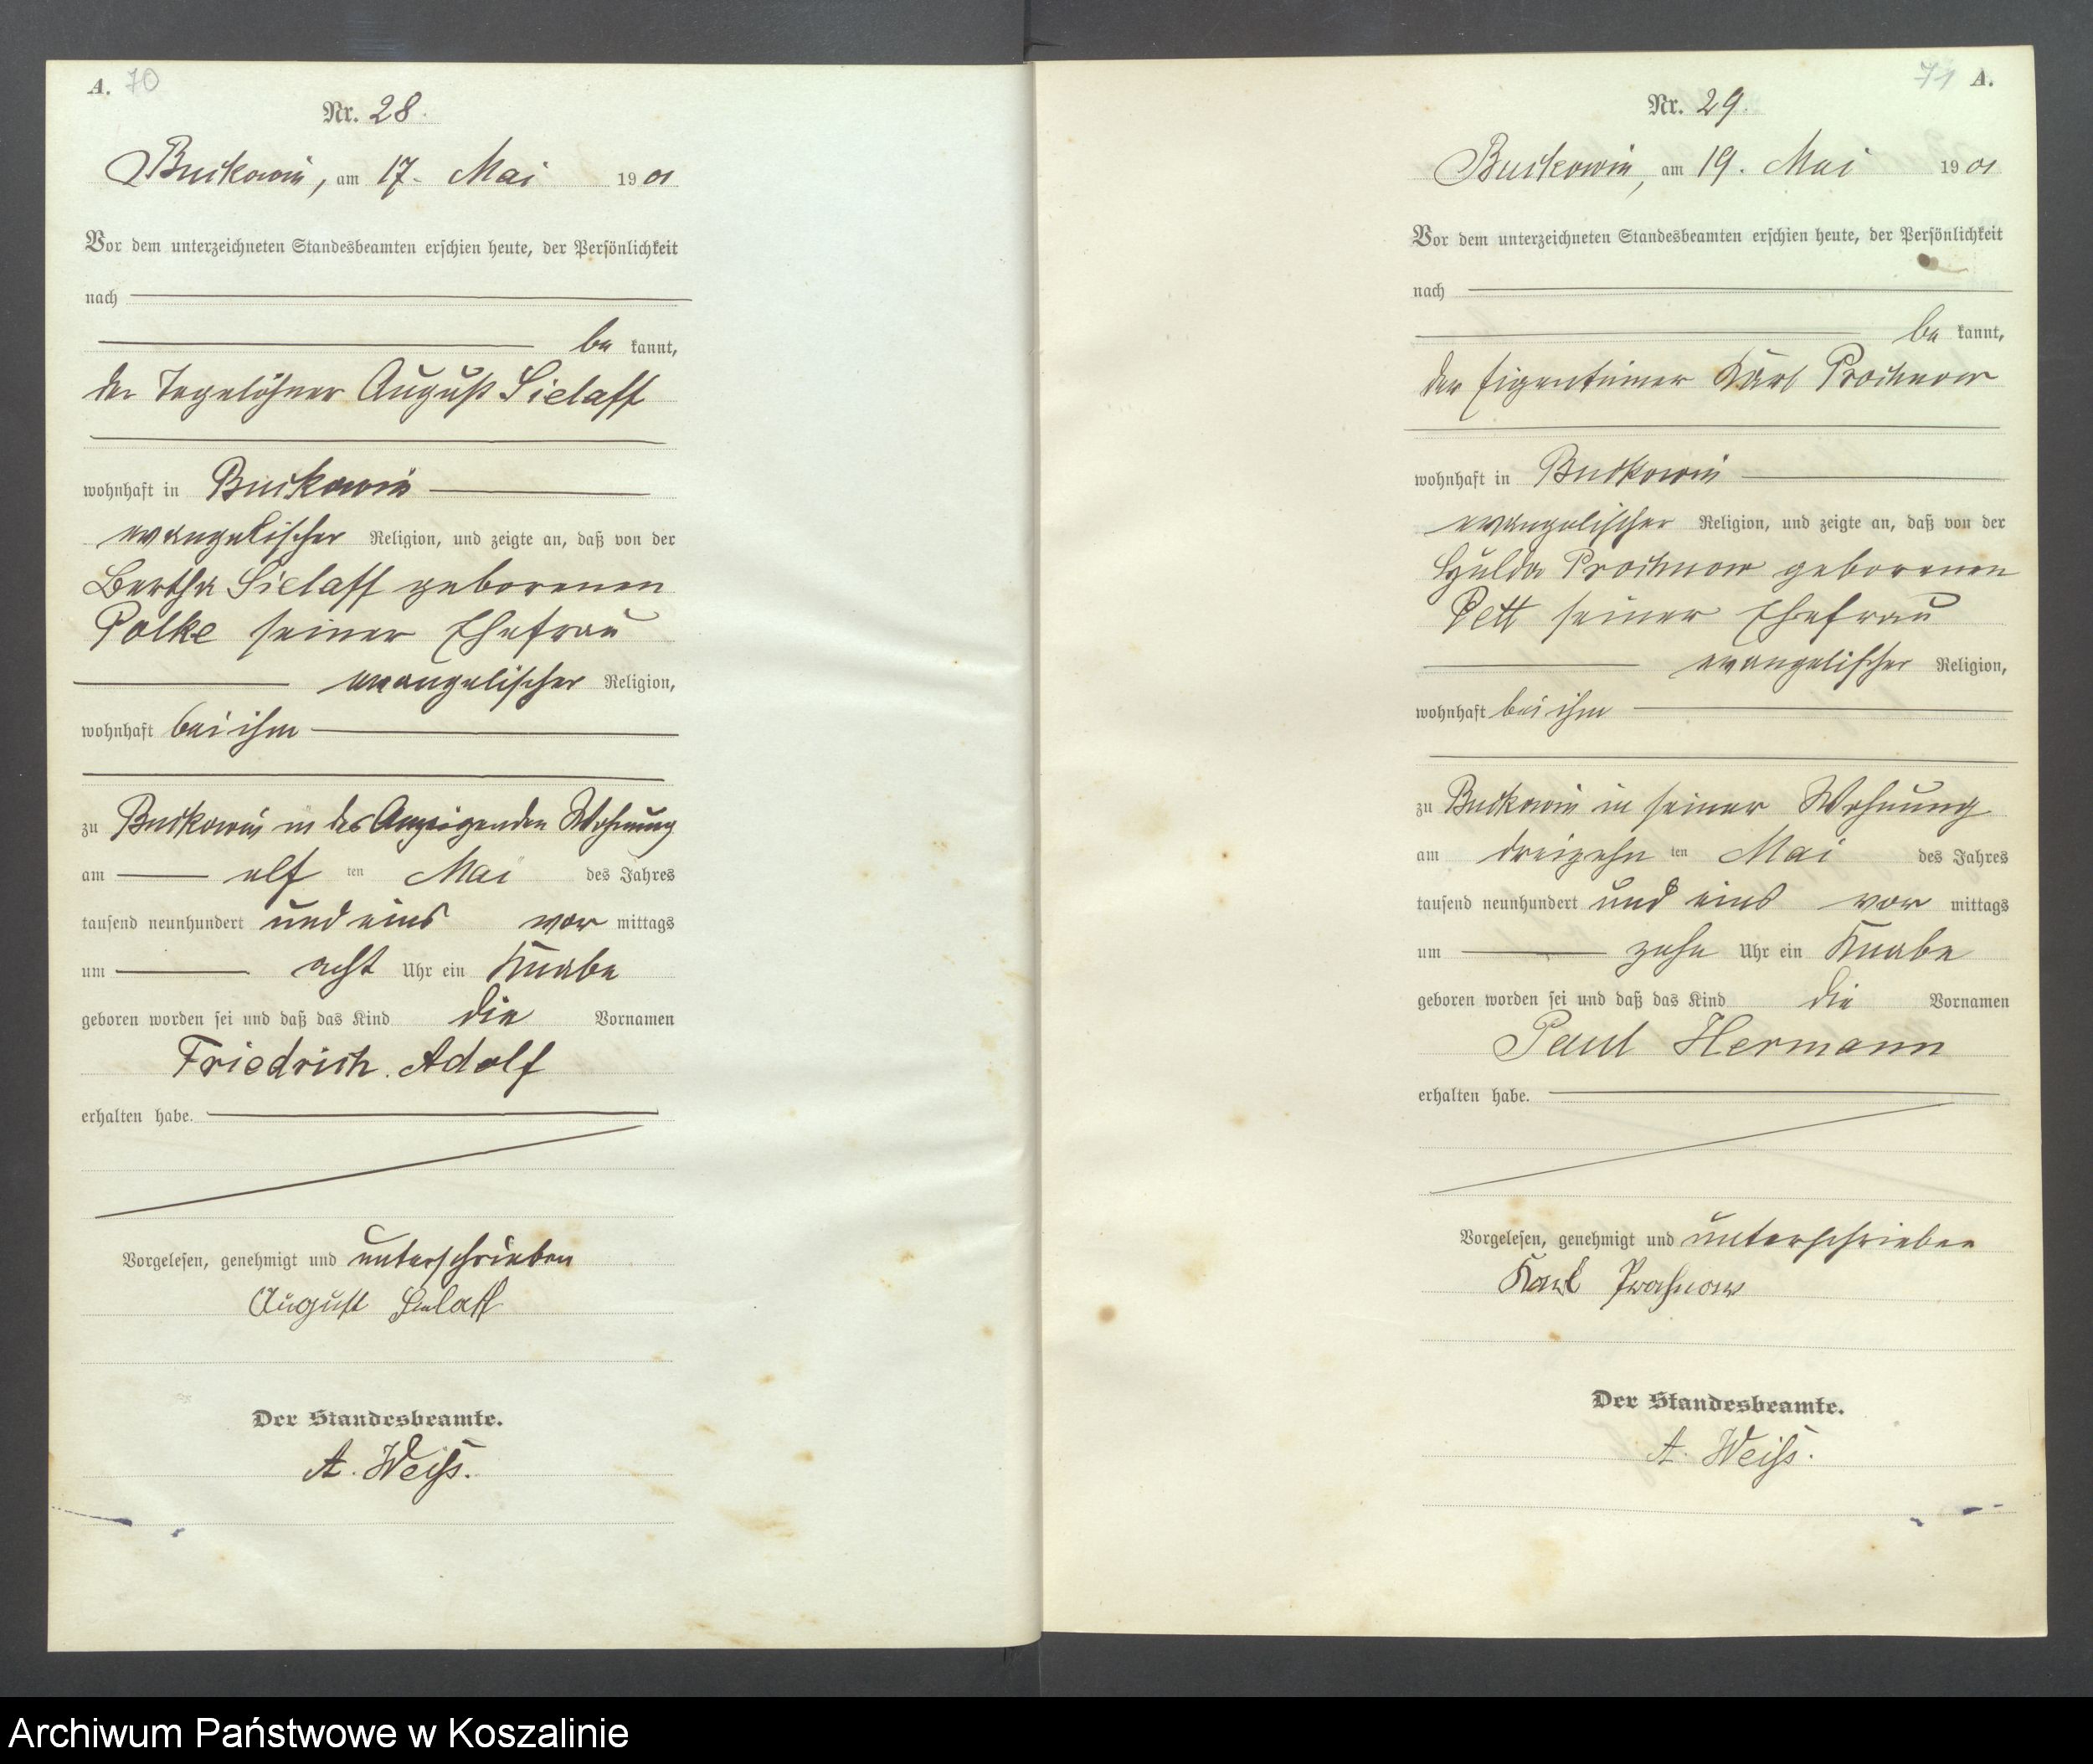 A. 70
Nr. 28.
Buckowin, am 17. Mai 1901
Vor dem unterzeichneten Standesbeamten erschien heute, der Persönlichkeit
nach
be kannt,
der Tagelöhner August Sielaff
wohnhaft in Buckowin
evangelischer Religion, und zeigte an, daß von der
Bertha Sielaff geborenen
Polke seiner Ehefrau
evangelischer Religion,
wohnhaft bei ihm
zu Buckowin in des Anzeigenden Wohnung
am elf ten Mai des Jahres
tausend neunhundert und eins vor mittags
um acht Uhr ein Knabe
geboren worden sei und daß das Kind die Vornamen
Friedrich Adolf
erhalten habe.
Vorgelesen, genehmigt und unterschrieben
August Sielaff
Der Standesbeamte.
A. Weiß.
71 A.
Nr. 29.
Buckowin, am 19. Mai 1901
Vor dem unterzeichneten Standesbeamten erschien heute, der Persönlichkeit
nach
be kannt,
der Eigentümer Karl Prochnow
wohnhaft in Buckowin
evangelischer Religion, und zeigte an, daß von der
Hulda Prochnow geborenen
Pett seiner Ehefrau
evangelischer Religion,
wohnhaft bei ihm
zu Buckowin in seiner Wohnung
am dreizehn ten Mai des Jahres
tausend neunhundert und eins vor mittags
um zehn Uhr ein Knabe
geboren worden sei und daß das Kind die Vornamen
Paul Hermann
erhalten habe.
Vorgelesen, genehmigt und unterschrieben
Karl Prochnow
Der Standesbeamte.
A. Weiß.
Archiwum Państwowe w Koszalinie